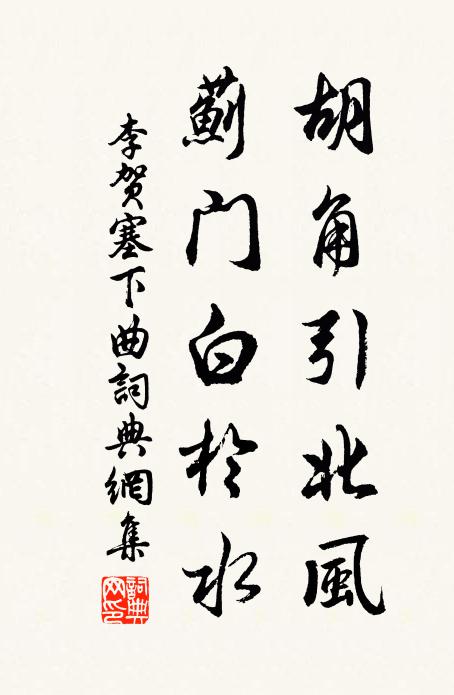 胡角引北風
薊门白於水
李賀塞下曲詞典網集
詞典网印